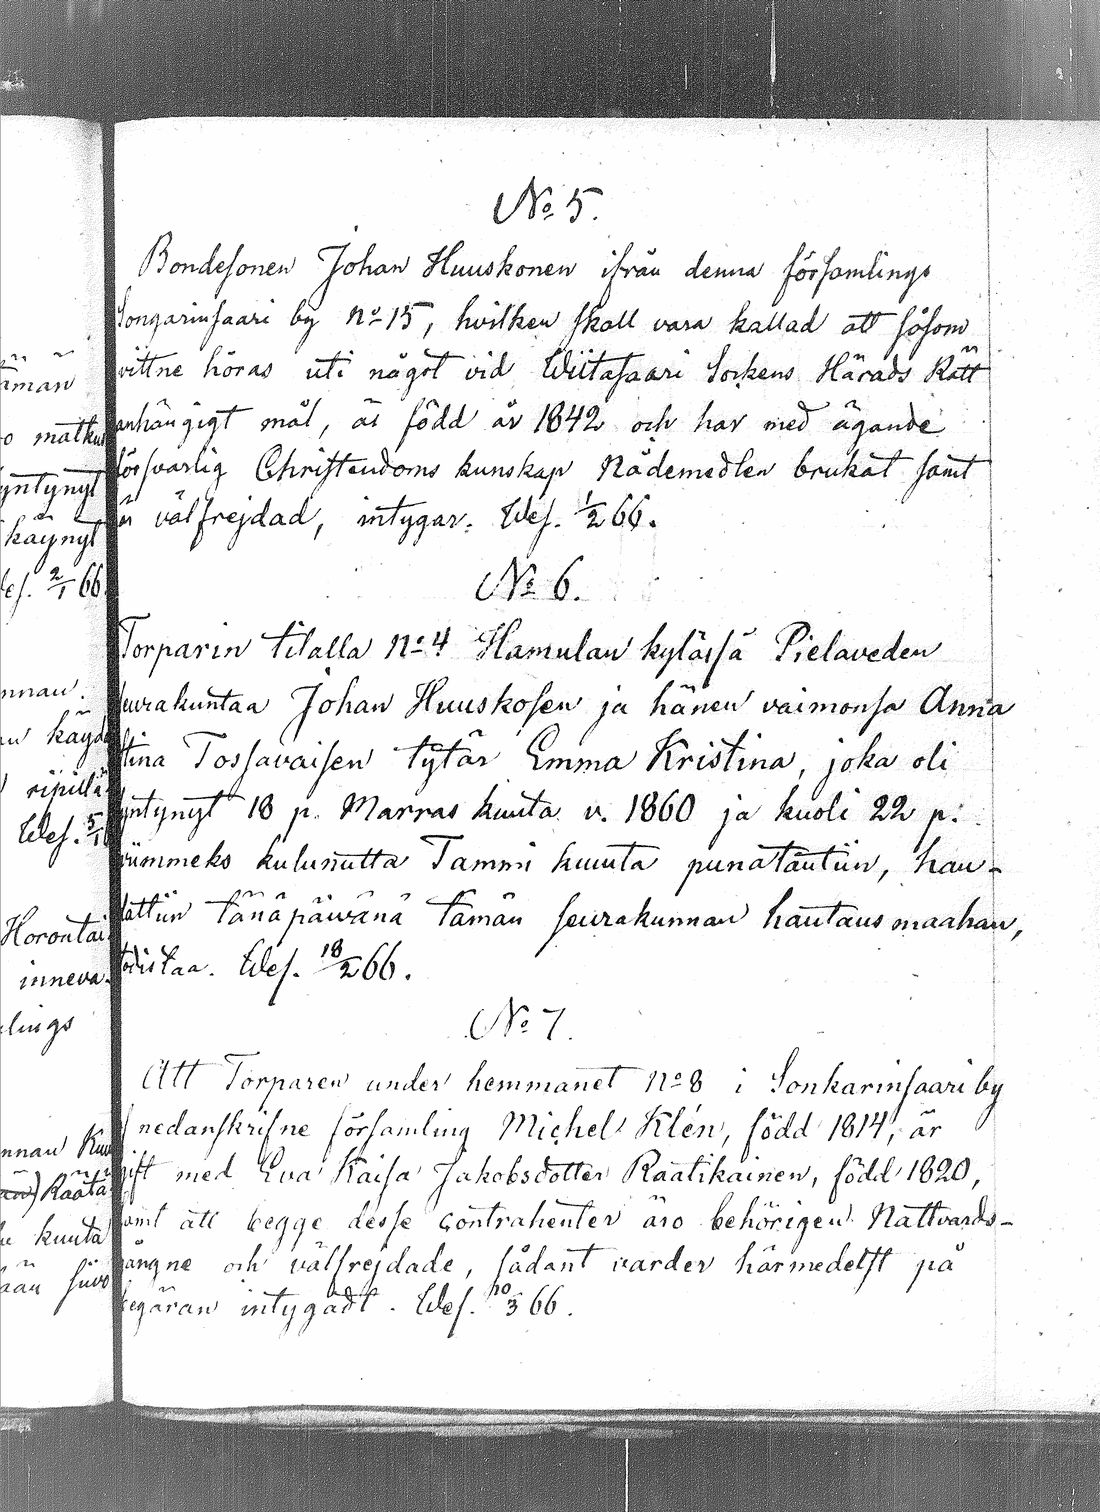 äman
o matkus
yntynyt
käynyt
es. 2/1 66.
nnan.
n käyd
ripillä
Wes. 5/1
Horontai
inneva.
lings
nnan Kuu
Räätä
kuuta
ään
No 5.
Bondesonen Johan Huuskonen ifrån denna församlings
Songarinsaari by No 15, hvilken skall vara kallad att såsom
vittne höras uti något vid Wiitasaari Sockens Härads Rätt
anhängigt mål, är född år 1842 och har med ägande
försvarlig Christendoms kunskap Nådemedlen brukat samt
är välfrejdad, intygar. Wes. 1/2 66.
No 6.
Torparin tilalla No 4 Hamulan kylässä Pielaveden
seurakuntaa Johan Huuskosen ja hänen vaimonsa Anna
Stina Tossavaisen tytär Emma Kristina, joka oli
syntynyt 18 p. Marras kuuta v. 1860 ja kuoli 22 p:
viimmeks kulunutta Tammi kuuta punatautiin, hau-
dattiin tänäpäivänä tämän seurakunnan hautausmaahan,
todistaa. Wes. 18/2 66.
No 7.
Att Torparen under hemmanet No 8 i Sonkarinsaari by
nedanskrifne församling Michel Klén, född 1814, är
gift med Eva Kaisa Jakobsdotter Raatikainen, född 1820,
samt att begge desse contrahenter äro behörigen Nattvards-
gångne och välfrejdade, sådant varder härmedelst på
begäran intygadt. Wes. 10/3 66.